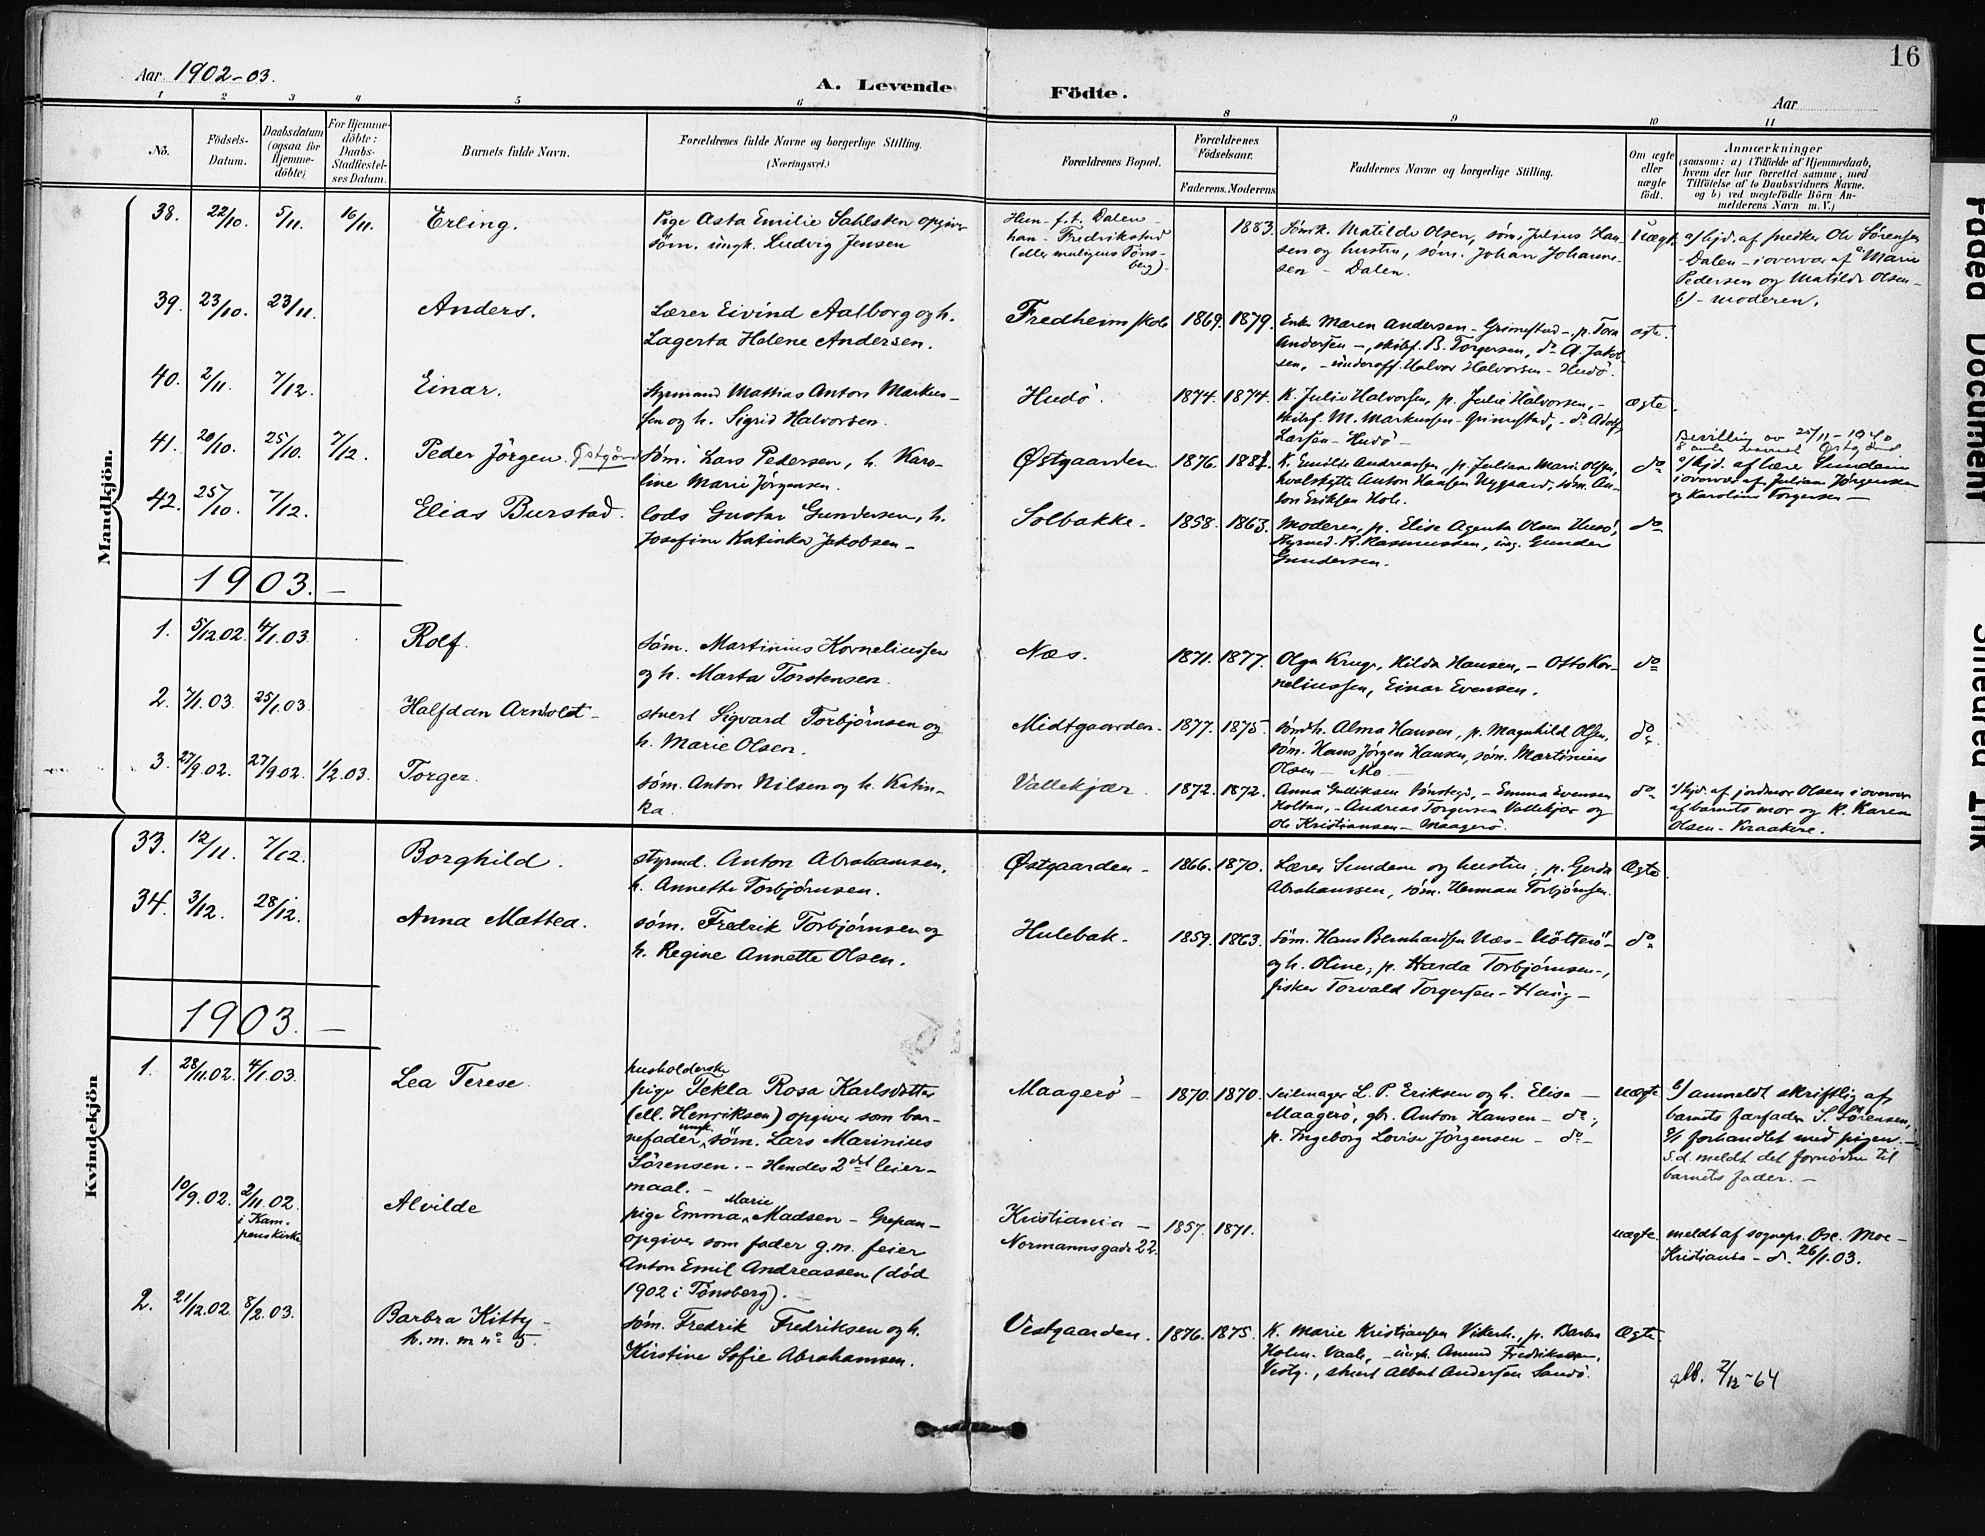 16
Aar 1902-03.
A. Levende Födte.
Aar
1 2 3 4 5 6 8 9 10 11
No.
Födsels-Datum.
Daabsdatum (ogsaa for Hjemme-döbte)
For Hjemme-döbte: Daabs-Stadfæstel-ses Datum.
Barnets fulde Navn.
Forældrenes fulde Navne og borgerlige Stilling.
(Næringsvei.)
Forældrenes Bopæl.
Forældrenes Födselsaar.
Faderens. Moderens.
Faddernes Navne og borgerlige Stilling.
Om ægte eller uægte födt.
Anmærkninger
(saasom: a) i Tilfælde af Hjemmedaab,
hvem der har forrettet samme, med
Tilföielse af to Daabsvidners Navne,
og b) ved uægtefödte Börn An-
melderens Navn m. V.)
Mandkjön.
38. 22/10. 5/11. 16/11. Erling.
Pige Asta Emilie Sahlsten opgiver
søm. ungk. Ludvig Jensen
Hun - f.t. Dalen -
han - Fredrikstad
(eller muligens Tøns-
berg).
1883.
Matilde Olsen, søm. Julius Han-
sen og hustru, søm. Johan Johann-
sen - Dalen.
Uægt.
a/ hjd. af fisker Ole Sørensen
- Dalen - i overvær af Marie
Pedersen og Matilde Olsen -
b/ - moderen.
39. 23/10. 23/11. Anders.
Lærer Eivind Aalborg og h.
Lagerta Helene Andersen.
Fredheim skole 1869. 1879.
Enke Maren Andersen - Grimestad -, p. Tora
Andersen -, skibsf. B. Torgersen, do A. Jakob-
sen, - underoff. Halvor Halvorsen - Hudö.
ægte.
40. 2/11. 7/12. Einar.
Styrmand Mathias Anton Markus-
sen og h. Sigrid Halvorsen.
Hudö. 1874. 1874.
K. Julie Halvorsen, p. Julie Halvorsen, -
skibsf. M. Markussen - Grimestad, - do Adolf
Larsen - Hudö -
ægte.
41. 20/10. 25/10. 7/12. Peder Jörgen. Östgård
søm. Lars Pedersen, h. Karo-
line Marie Jörgensen.
Østgaarden 1876. 1881.
K. Emilie Andreassen, p. Juliane Marie Olsen,
hvalskytte Anton Hansen Nygaard, søm. An-
ton Eriksen Hole.
do
Bevilling av 25/11-1940
a/ hjd. af lærer Sundene
i overvær af Juliane Jörgensen
og Karoline Torgersen -
42. 25/10. 7/12. Elias Burstad.
lods Gustav Gundersen, h.
Josefine Katinka Jakobsen -
Solbakke. 1858. 1863.
Moderen, p. Elise Agenta Olsen Husö,
styrmd. R. Rasmussen, ung. Gunder
Gundersen.
do
1903. -
1. 5/12 02. 4/1.03. Rolf.
Søm. Martinius Korneliussen
og h. Marta Torstensen.
Næs. 1871. 1877.
Olga Kruge, Hilda Hansen, - Otto Kor-
neliussen, Einar Evensen.
do
2. 7/1.03. 25/1.03. Halfdan Arnholdt -
stuert Sigvard Torbjörnsen og
h. Marie Olsen.
Midtgaarden. 1877. 1875.
sømdh. Alma Hansen, p. Magnhild Olsen,
søm. Hans Jørgen Hansen, søm. Martinius
Olsen - Mo -
do
3. 27/9.02. 27/9 02. 1/2.03. Torger.
søm. Anton Nilsen og h. Katin-
ka.
Vallekjær. 1872. 1872.
Anna Gulliksen, - Emma Evensen
Holtan, - Andreas Torgersen Vallekjær og
Ole Kristiansen - Maagerö.
do
a/ hjd. af jordmor Olsen i overvær
af barnets mor og K. Karen
Olsen - Kraakere.
Kvindekjön
33. 12/11. 7/12. Borghild.
styrmd. Anton Abrahamsen,
h. Annette Torbjørnsen.
Østgaarden - 1866. 1870.
Lærer Sundene og hustru, p. Gerda
Abrahamsen, søm. Herman Torbjörnsen.
Ægte.
34. 3/12. 28/12. Anna Mattea.
søm. Fredrik Torbjørnsen og
h. Regine Annette Olsen.
Hulebak. 1859. 1863.
søm. Hans Bernhardsen Næs - Nötterö -
og h. Oline; p. Harda Torbjørnsen -,
fisker Torvald Torgersen - Haug -
do
1903. -
1. 28/11.02. 4/1.03. Lea Terese.
husholderske
pige Tekla Rosa Karlsdotter
(ell. Henriksen) opgiver som bar-
nefader ungk. søm. Lars Marinius
Sörensen. - Hendes 2det leier-
maal. -
Maagerö - 1870. 1870.
seilmager L. P. Eriksen og h. Elise -
Maagerö, gb. Anton Hansen - do;
p. Ingeborg Lovise Jörgensen - do -
uægte
anmeldt skriftlig af
barnets farfader S. Sörensen,
forhandlet med pigen. -
S.d. meldt det fornødne til
barnets fader. -
10/9.02. 2/11.02. i Kam-
penskirke
Alvilde
pige Emma Marie Madsen - Grepan -
opgiver som fader g.m. feier
Anton Emil Andreassen (död
1902 i Tönsberg). -
Kristiania -
Normannsgade 22.
1857. 1871.
uægte.
meldt af sognepr. Osc. Moe -
Kristiania - d. 26/1.03.
2. 21/12.02. 8/2.03. Barbra Kitty -
h. m. m. no 5.
søm. Fredrik Fredriksen og h.
Kirstine Sofie Abrahamsen.
Vestgaarden. 1876. 1875.
K. Marie Kristiansen Vikerh., p. Barbra
Holm - Vaale, - ungk. Amund Fredriksen,
Vestg., stuert Albert Andersen Sandö.
Ægte.
2/12-64
Faded Document
Smeared Ink